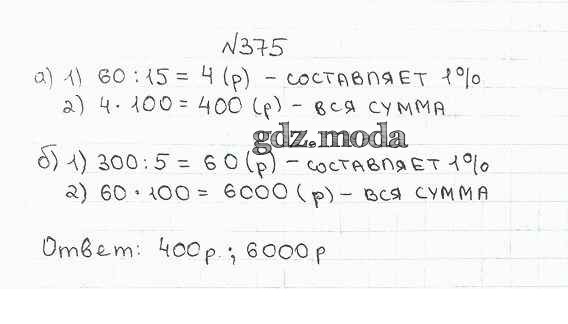 №375
а) 1) 60 : 15 = 4 (р) – СОСТАВЛЯЕТ 1%
2) 4 · 100 = 400 (р) – ВСЯ СУММА
gdz.moda
б) 1) 300 : 5 = 60 (р) – СОСТАВЛЯЕТ 1%
2) 60 · 100 = 6000 (р) – ВСЯ СУММА
Ответ: 400р. ; 6000р